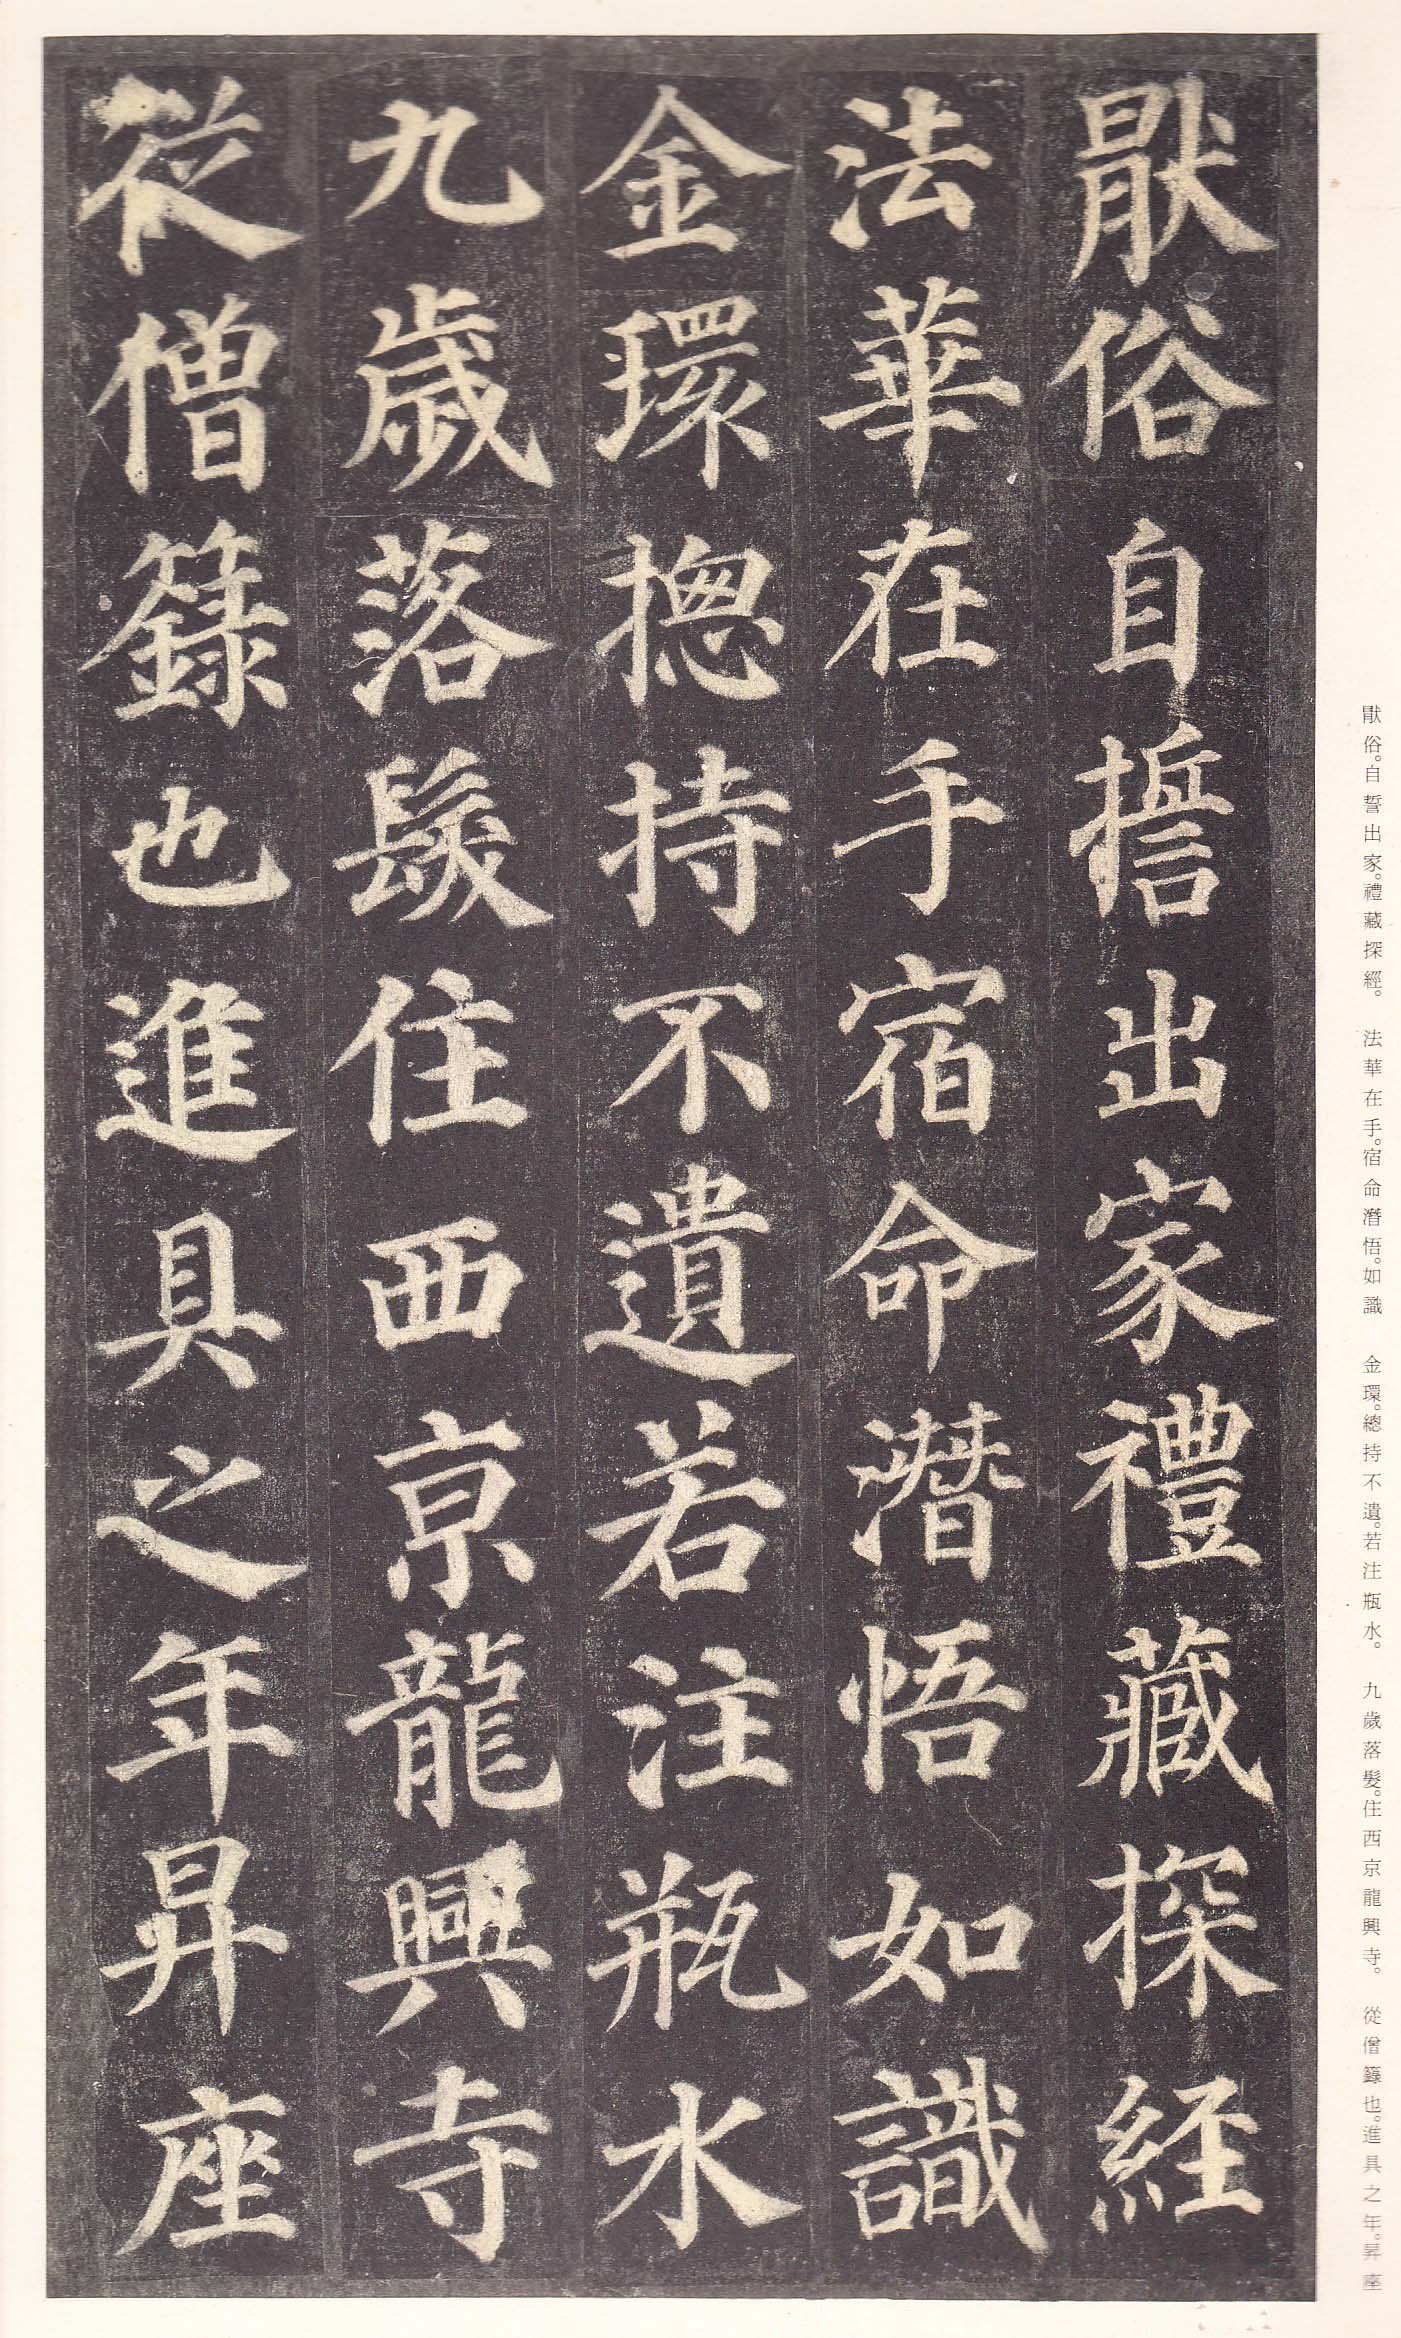 猒俗自誓出家禮藏探經
法華在手宿命潛悟如識
金環揔持不遺若注瓶水
九歲落髮住西京龍興寺
從僧籙也進具之年昇座
猒俗。自誓出家。禮藏探經。　法華在手。宿命潛悟。如識　金環。總持不遺。若注瓶水。　九歲落髮。住西京龍興寺。　從僧籙也。進具之年。昇座